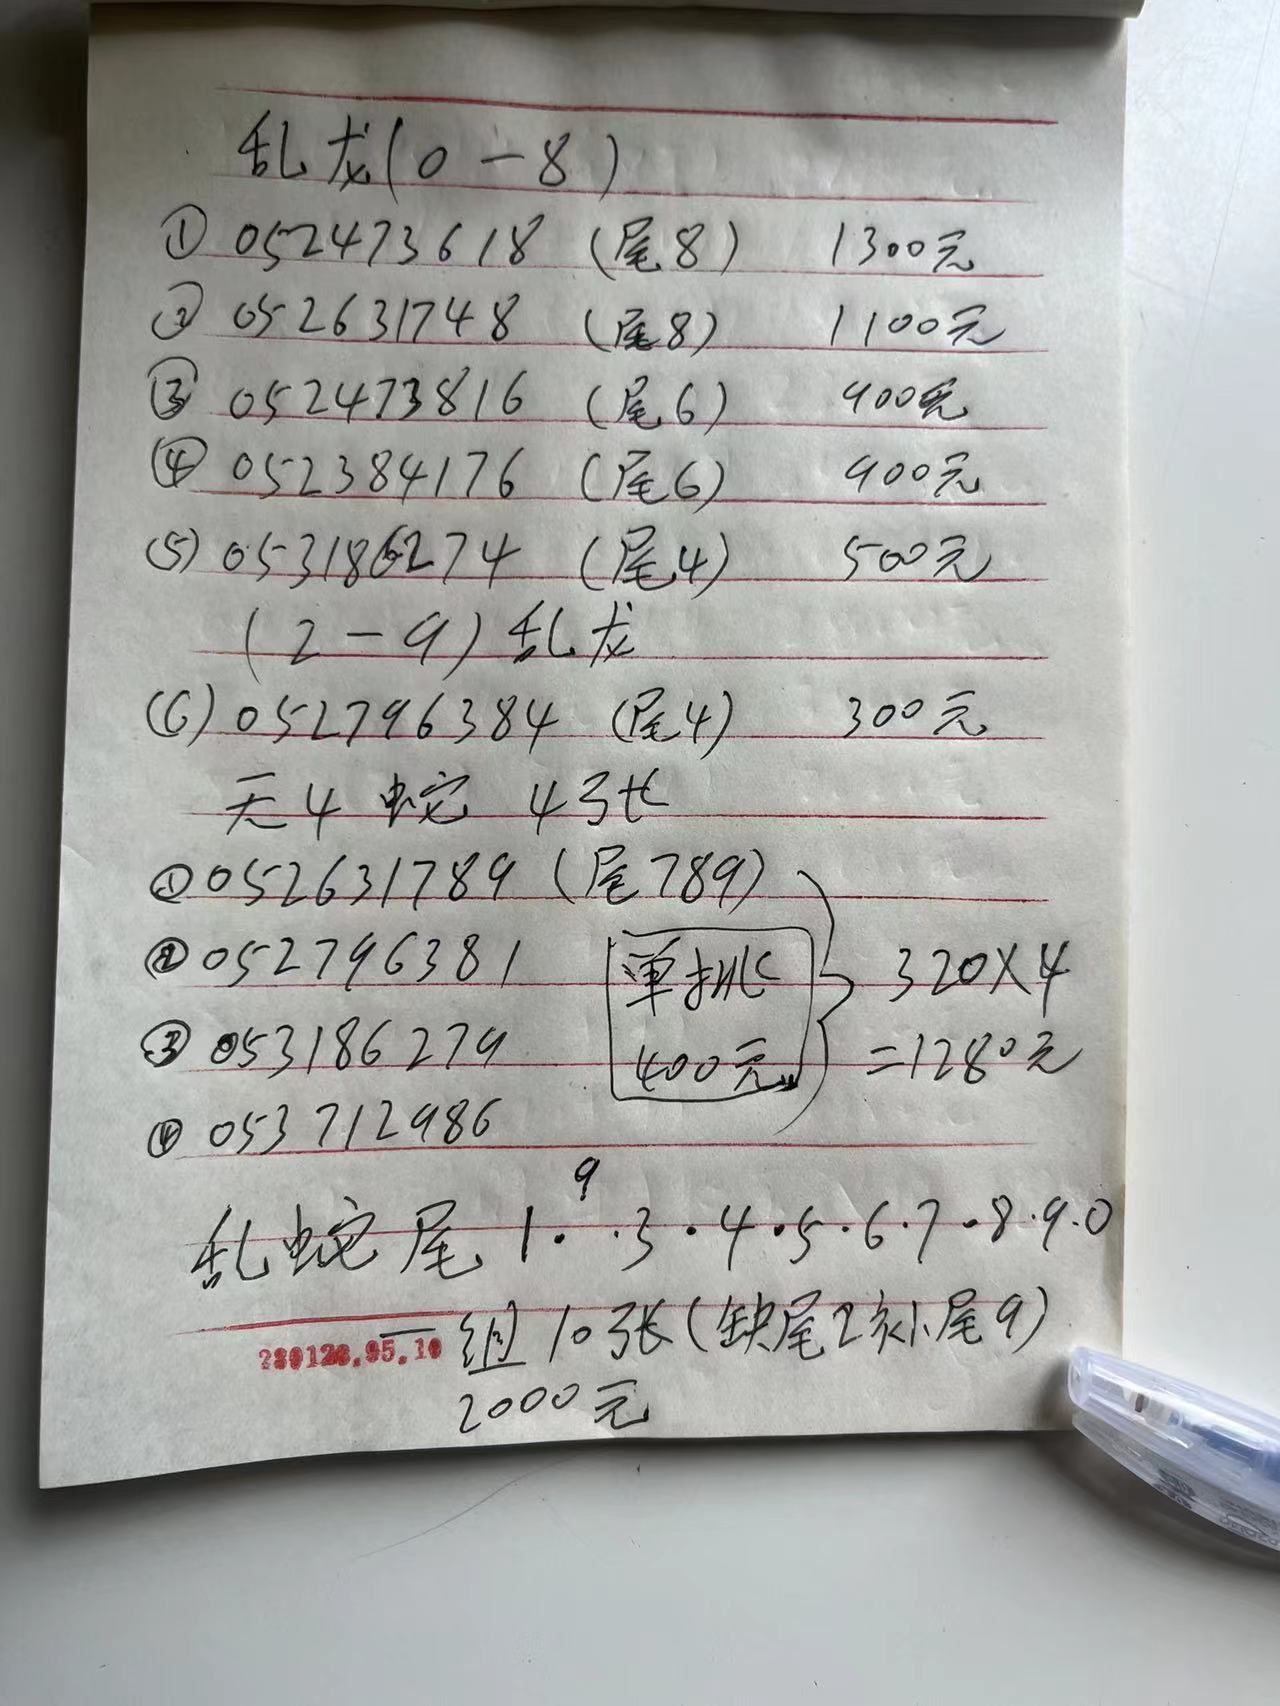 乱龙(0－8)
① 052473618 (尾8) 1300元
② 052631748 (尾8) 1100元
③ 052473816 (尾6) 900元
④ 052384176 (尾6) 900元
(5) 053186274 (尾4) 500元
(2－9)乱龙
(6) 052796384 (尾4) 300元
无4 蛇 4张
① 052631789 (尾789)
② 052796381 单挑 320X4
③ 053186279 400元 =1280元
④ 053712986
9
乱蛇尾 1··3·4·5·6·7·8·9·0
一组10张(缺尾2补尾9)
2000元